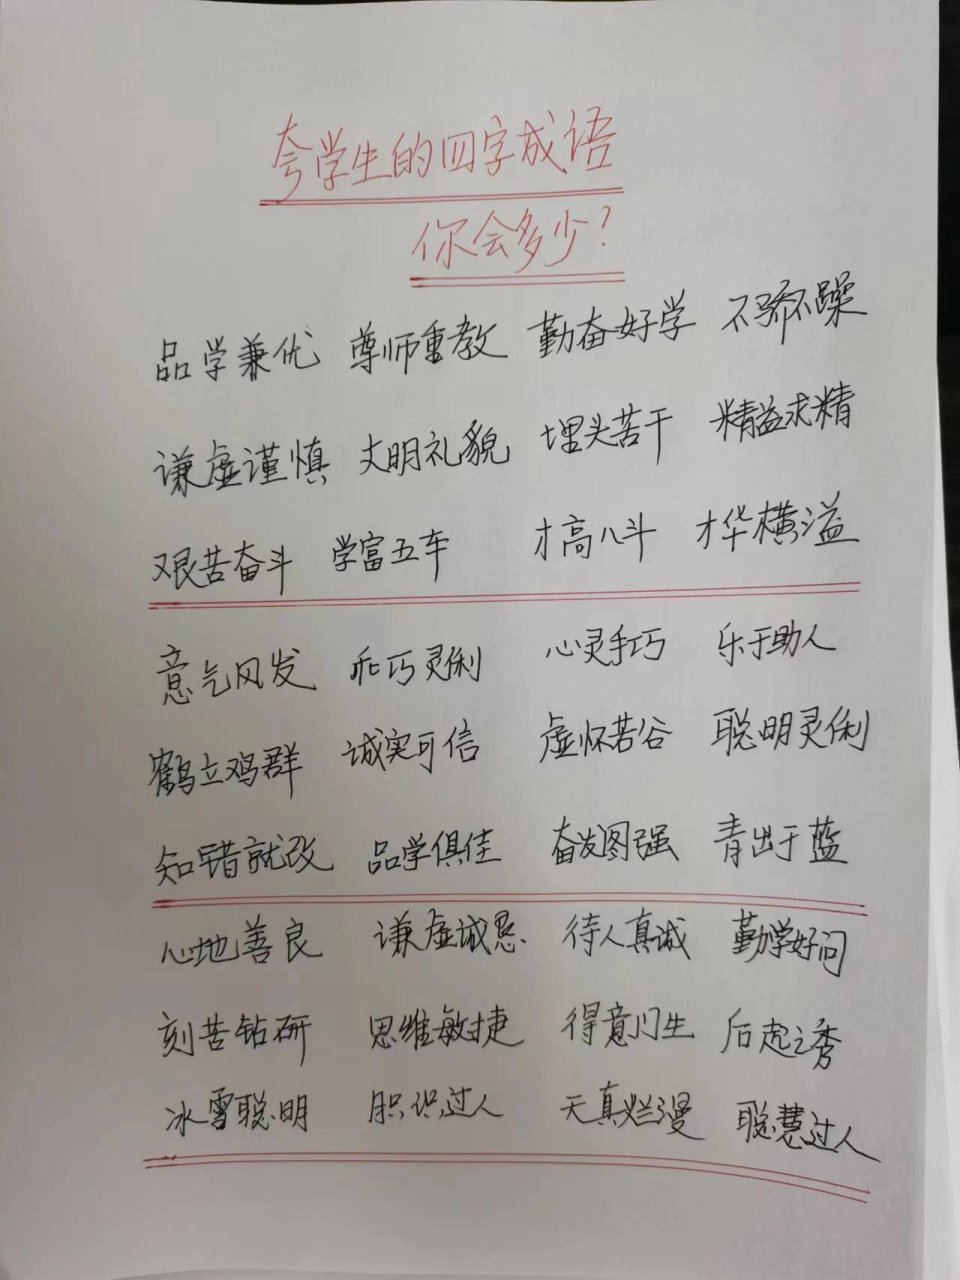 夸学生的四字成语
你会多少?
品学兼优 尊师重教 勤奋好学 不骄不躁
谦虚谨慎 文明礼貌 埋头苦干 精益求精
艰苦奋斗 学富五车 才高八斗 才华横溢
意气风发 乖巧灵俐 心灵手巧 乐于助人
鹤立鸡群 诚实可信 虚怀若谷 聪明灵俐
知错就改 品学俱佳 奋发图强 青出于蓝
心地善良 谦虚诚恳 待人真诚 勤学好问
刻苦钻研 思维敏捷 得意门生 后起之秀
冰雪聪明 胆识过人 天真烂漫 聪慧过人